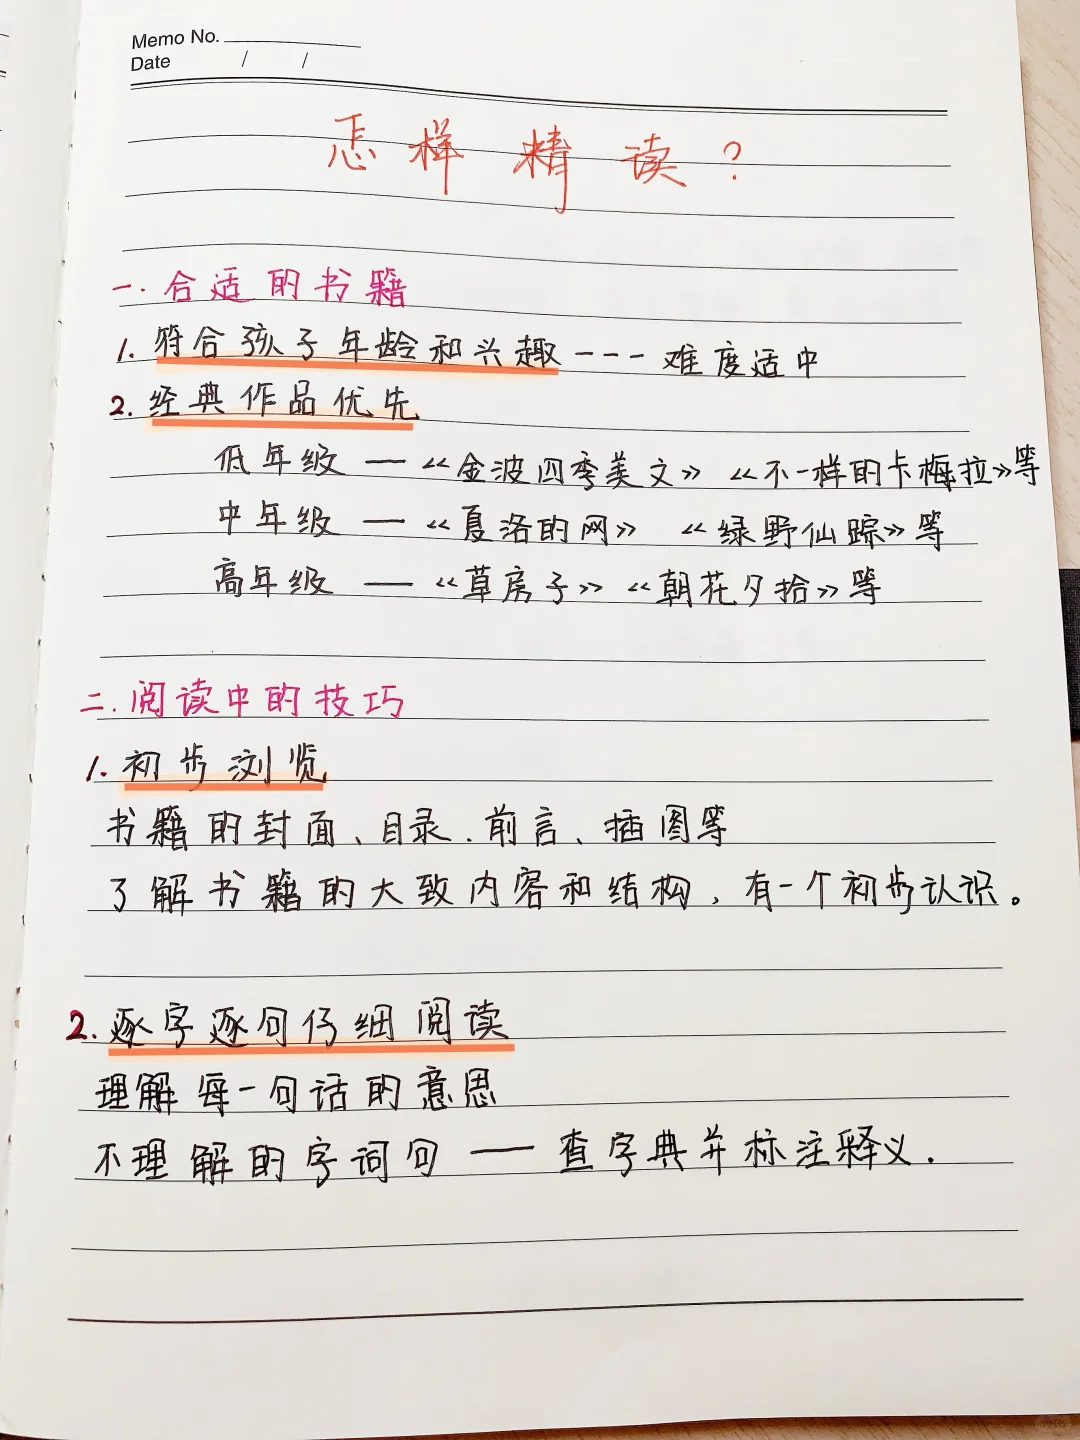 Memo No.
Date / /
怎样精读？
一.合适的书籍
1.符合孩子年龄和兴趣---难度适中
2.经典作品优先
低年级——《金波四季美文》《不一样的卡梅拉》等
中年级——《夏洛的网》《绿野仙踪》等
高年级——《草房子》《朝花夕拾》等
二.阅读中的技巧
1.初步浏览
书籍的封面、目录.前言、插图等
了解书籍的大致内容和结构，有一个初步认识。
2.逐字逐句仔细阅读
理解每一句话的意思
不理解的字词句——查字典并标注释义.